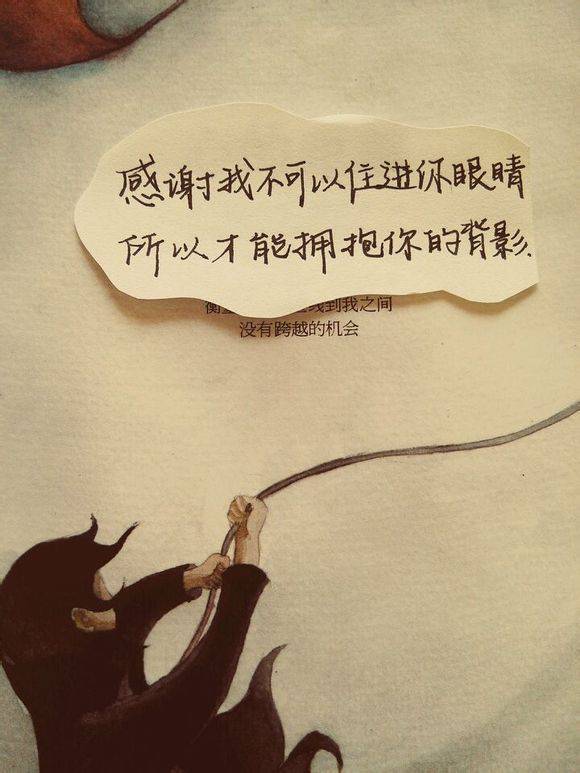 感谢我不可以住进你眼睛
所以才能拥抱你的背影.
线到我之间
没有跨越的机会